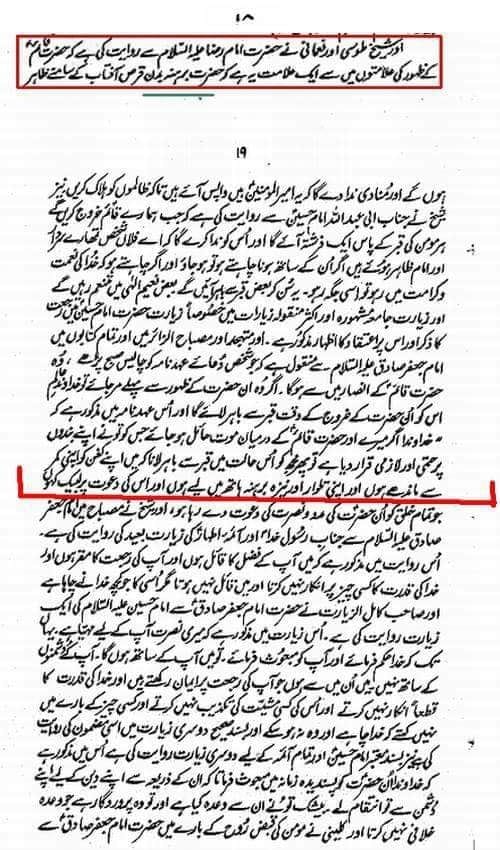 ۱۸
اور شیخ طوسی اور نعمانی نے حضرت امام رضا علیہ السلام سے روایت کی ہے کہ حضرت قائم
کے ظہور کی علامتوں میں سے ایک علامت یہ ہے کہ حضرت برہنہ بدن قرص آفتاب کے سامنے ظاہر
۱۹
ہوں گے اور منادی ندا دے گا کہ یہ امیرالمومنین ہیں واپس آئے ہیں تاکہ ظالموں کو ہلاک کریں نیز
شیخ نے جناب ابی عبداللہ امام حسین سے روایت کی ہے کہ جب ہمارے قائم خروج کریں گے
ہر مومن کی قبر کے پاس ایک فرشتہ آئے گا اور اُس کو ندا کرے گا کہ اے فلاں شخص تمھارے سردار
اور امام ظاہر ہوئے ہیں اگر اُن کے ساتھ ہونا چاہتے ہو تو ہو جاؤ اور اگر چاہتے ہو کہ خدا کی نعمت
و کرامت میں رہو تو اسی جگہ رہو۔ یہ سُن کر بعض قبر سے باہر آئیں گے بعض نعیم الٰہی میں متنعم رہیں گے
اور زیارت جامعہ مشہورہ اور اکثر منقولہ زیارات میں خصوصاً زیارت حضرت امام حسین میں رجعت
کا ذکر اور اس پر اعتقاد کا اظہار مذکور ہے۔ اور متہجد اور مصباح الزائر میں اور تمام کتابوں میں
امام جعفر صادق علیہ السلام سے منقول ہے کہ جو شخص دُعائے عہدنامہ کو چالیس صبح پڑھے، وُہ
حضرت قائم کے انصار میں سے ہوگا۔ اگر وُہ ان حضرت کے ظہور سے پہلے مر جائے تو خداوند عالم
اس کو اُن حضرت کے خروج کے وقت قبر سے باہر لائے گا اور اُس عہدنامہ میں مذکور ہے کہ
خداوندا اگر میرے اور حضرت قائم کے درمیان موت حائل ہو جائے جس کو تو نے اپنے بندوں
پر حتمی اور لازمی قرار دیا ہے تو پھر مجھ کو اُس حالت میں قبر سے باہر لانا کہ میں اپنے کفن کو اپنی کمر
سے باندھے ہوں اور اپنی تلوار اور نیزہ برہنہ ہاتھ میں لیے ہوں اور اس کی دعوت پر لبیک کہوں
جو تمام خلق کو اُن حضرت کی مدد و نصرت کی دعوت دے رہا ہو، اور شیخ نے مصباح میں امام جعفر
صادق علیہ السلام سے جناب رسول خدا اور آئمہ اطہار کی زیارت بعید کی روایت کی ہے۔
اُس روایت میں مذکور ہے کہ میں آپ کے فضل کا قائل ہوں اور آپ کی رجعت کا مقر ہوں اور
خدا کی قدرت کا کسی چیز پر انکار نہیں کرتا اور میں قائل نہیں ہوتا مگر اسی کا جو کچھ خدا نے چاہا ہے
اور صاحب کامل الزیارت نے حضرت امام جعفر صادق سے امام حسین علیہ السلام کی ایک
زیارت روایت کی ہے۔ اُس زیارت میں مذکور ہے کہ میری نصرت آپ کے لیے مہیا ہے۔ یہاں
تک کہ خدا حکم فرمائے اور آپ کو مبعوث فرمائے۔ تو میں آپ کے ساتھ ہوں گا۔ آپ کے دشمنوں
کے ساتھ نہیں ہیں میں اُن میں سے ہوں جو آپ کی رجعت پر ایمان رکھتے ہیں اور خدا کی قدرت کا
قطعاً انکار نہیں کرتے اور اُس کی کسی مشیت کی تکذیب نہیں کرتے اور کسی چیز کے بارے میں
نہیں کہتے کہ خدا چاہے اور وہ نہ ہو سکے اور بسند صحیح دوسری زیارت میں اسی مضمون کی روایت
کی ہے نیز بسند معتبر امام حسین اور تمام آئمہ کے لیے دوسری زیارت روایت کی ہے اُس میں مذکور ہے
کہ خداوندا اُن حضرت کو پسندیدہ زمانہ میں مبعوث فرمانا کہ ان کے ذریعہ سے اپنے دین کے لیے اپنے
دشمن سے تو انتقام لے۔ بیشک تو نے ان سے وعدہ کیا ہے اور تو وہ پروردگار ہے جو وعدہ
خلافی نہیں کرتا اور کلینی نے مومن کی قبض رُوح کے بارے میں حضرت امام جعفر صادق سے